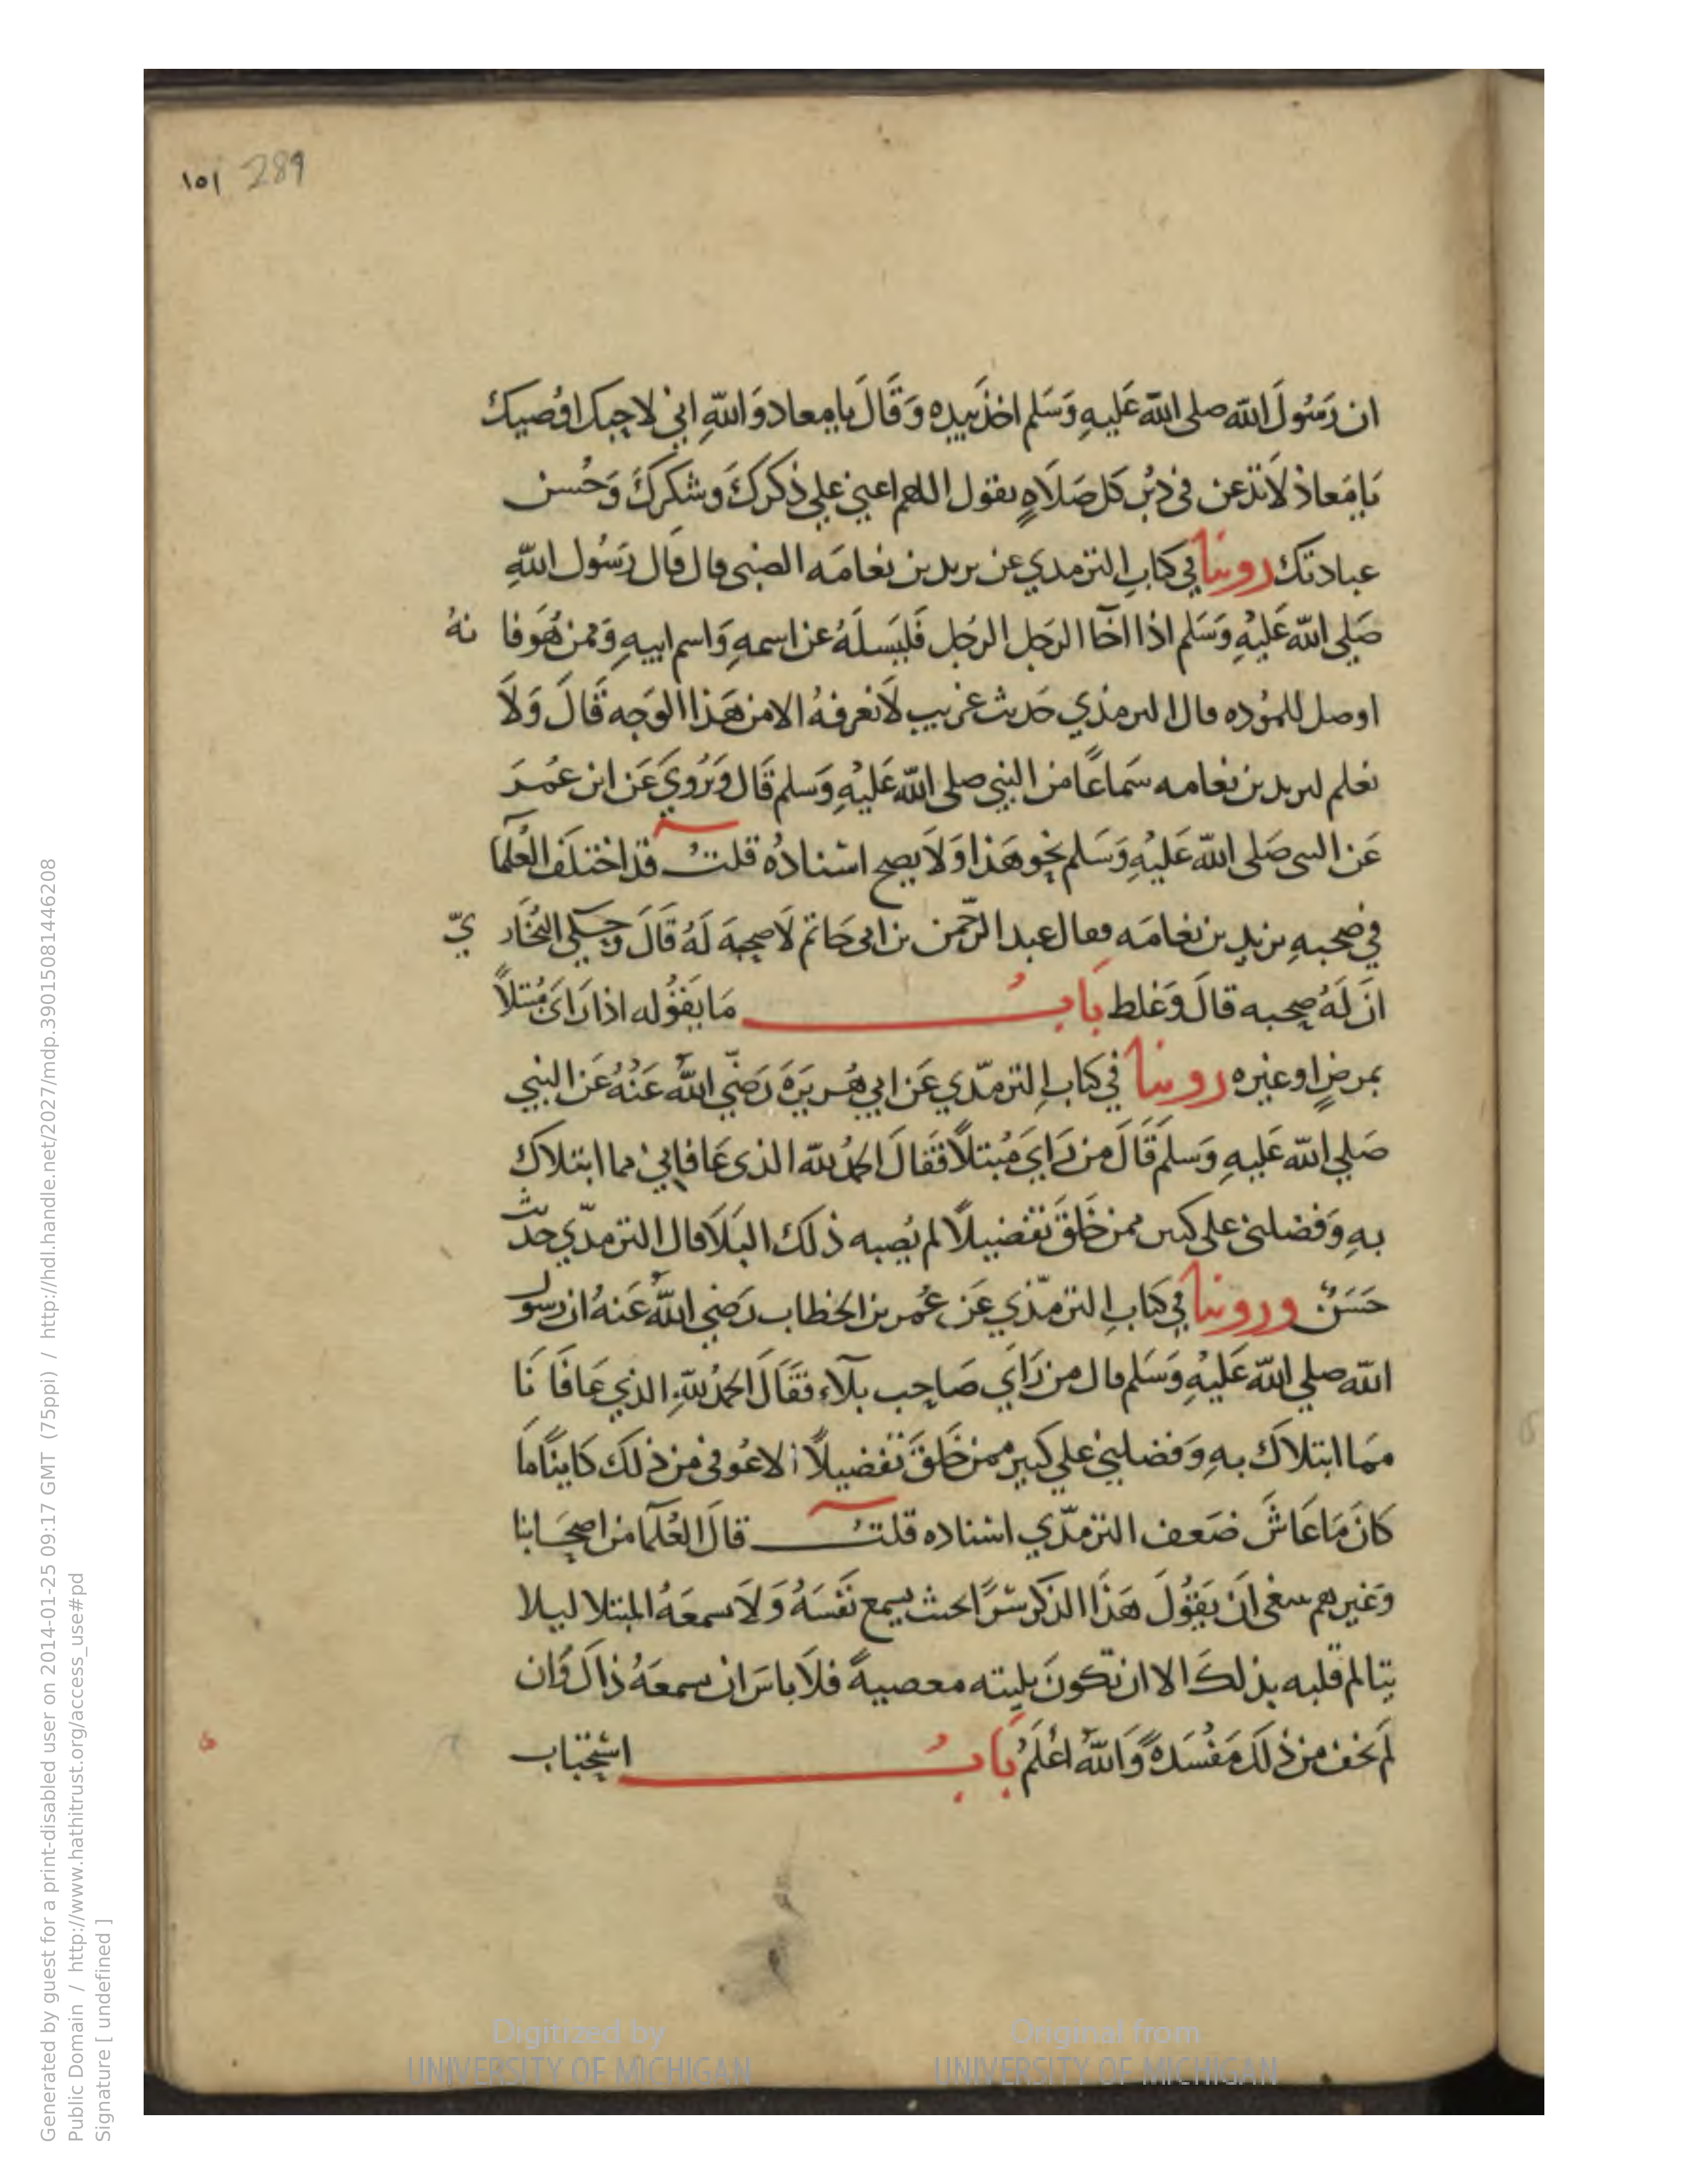 ١٥١ 289
ان رَسُولَ الله صلى الله عَليهِ وَسَلم اخذَ بيدِه وَقَالَ يا معاد وَاللهِ اني لاحبك اوُصيك
يَا مَعاذ لَا تدعن فى دُبُر كل صَلَاهٍ يقول اللهم اعني علي ذكركَ وشكركَ وَحُسن
عبادتك روينا في كتابِ الترمدي عن يريد بن نعامَه الضبى قال قال رَسُول اللهِ
صَلى الله عَليْهِ وَسَلم اذا اخَآ الرَجل الرَجُل فَليَسلَهُ عن اسمهِ وَاسم ابيهِ وَممن هُوَ فا نهُ
اوصل للموُده قال الترمذي حَديث غريب لَا نعرفهُ الا من هَذا الوَجه قَالَ وَلَا
نعلم ليريد بن نعامه سَماعًا من النبي صلى الله عَليْهِ وَسلم قَال وَيُرْوي عَن ابن عمُرَ
عَن النبى صَلى الله عَليْهِ وَسَلم نحو هَذا وَلَا يصح اسْنادُه قلتُ قد اختلَف العُلمآ
في صُحبهِ يزيد بن نعامَه فقال عبد الرحمن بن ابى حَاتم لَا صحبهَ لَهُ قَالَ وَحكى البُخَار يّ
انَ لَهُ صحبه قالَ وَغلط بَابُ مَا يَقوُله اذا رَاىَ مُبْتلاً
بمرضٍ او غيره روينا في كتابِ الترمدّي عَن ابي هُريَرَةَ رَضي اللهُ عَنْهُ عَن النبيِ
صَلي الله عَليهِ وَسلَم قَالَ من رَايَ مُبتلاً فَقالَ الحمُد لله الذى عَافاني مما ابتلاك
بهِ وَفضلنى على كثير ممن خَلَقَ تفضيلاً لم يُصبه ذلك البَلَا قال الترمدّي حديث
حَسَنٌ وروينا في كتابِ الترمذّي عَن عُمر بن الخطاب رَضي اللهُ عَنهُ ان رسول
الله صلي الله عَليْهِ وَسَلم قال من رَايَ صَاحِب بلآء فقَالَ الحمُد للهِ الذي عَافَا نَا
ممَا ابتلاك بهِ وَفضلني علي كثير ممن خَلقَ تفضيلاً الا عُوفى من ذلك كَاينًا ما
كانَ مَا عَاشَ ضَعف الترمدّي اسْناده قلتُ قالَ العُلمآ من اصحَابنا
وَغيرهم ينبغى ان يَقوُلَ هَذَا الذكر سرًا بحيث يسمع نَفْسَهُ وَلَا يسمعَهُ المبتلا ليلا
يتالم قلبه بذلكَ الا ان تكونَ بليته معصيةً فلَا باسَ ان يسمعَهُ ذاكَ وان
لَم يخف من ذلكَ مَفْسَدةً وَاللهُ اعْلَمُ بَابُ اسْتحباب
Digitized by
UNIVERSITY OF MICHIGAN
Original from
UNIVERSITY OF MICHIGAN
Generated by guest for a print-disabled user on 2014-01-25 09:17 GMT (75ppi) / http://hdl.handle.net/2027/mdp.39015081446208
Public Domain / http://www.hathitrust.org/access_use#pd
Signature [ undefined ]